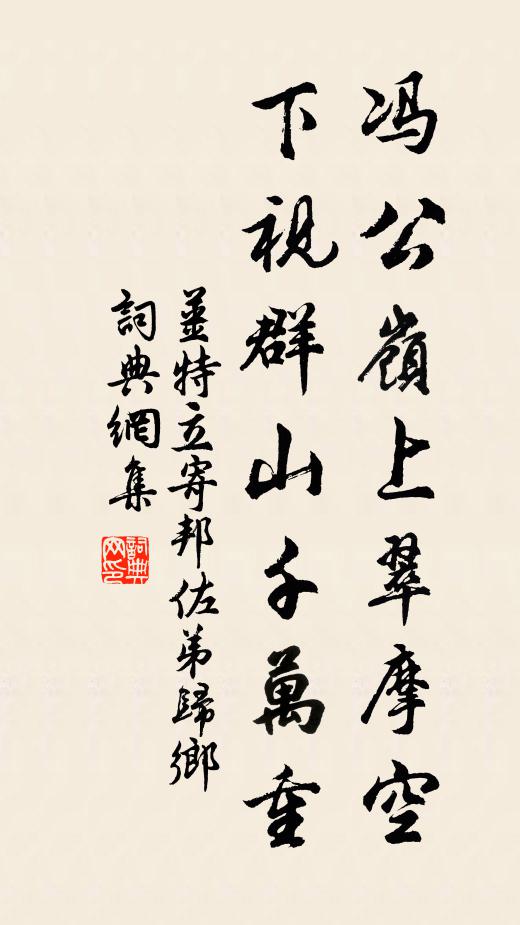 冯公嶺上翠摩空
下視群山千萬重
薑特立寄邦佐弟歸鄉
詞典網集
詞典网印